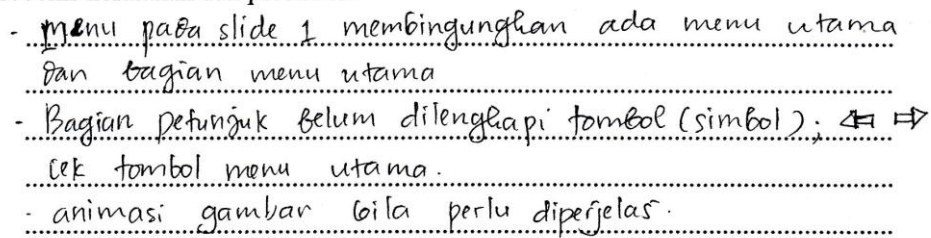 - Menu pada slide 1 membingungkan ada menu utama
dan bagian menu utama
- Bagian petunjuk belum dilengkapi tombol (simbol); ⇦ ⇨
cek tombol menu utama.
- animasi gambar bila perlu diperjelas.